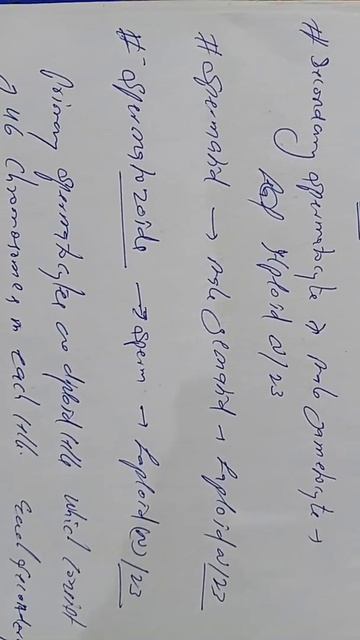 # Secondary spermatocyte → male gametocyte →
Haploid N/23
# Spermatid → male gonatid → haploid N/23
# Spermatozoids → sperm → haploid (N)/23
Primary spermatocytes are diploid cells which consist
46 Chromosomes in each cell. Each